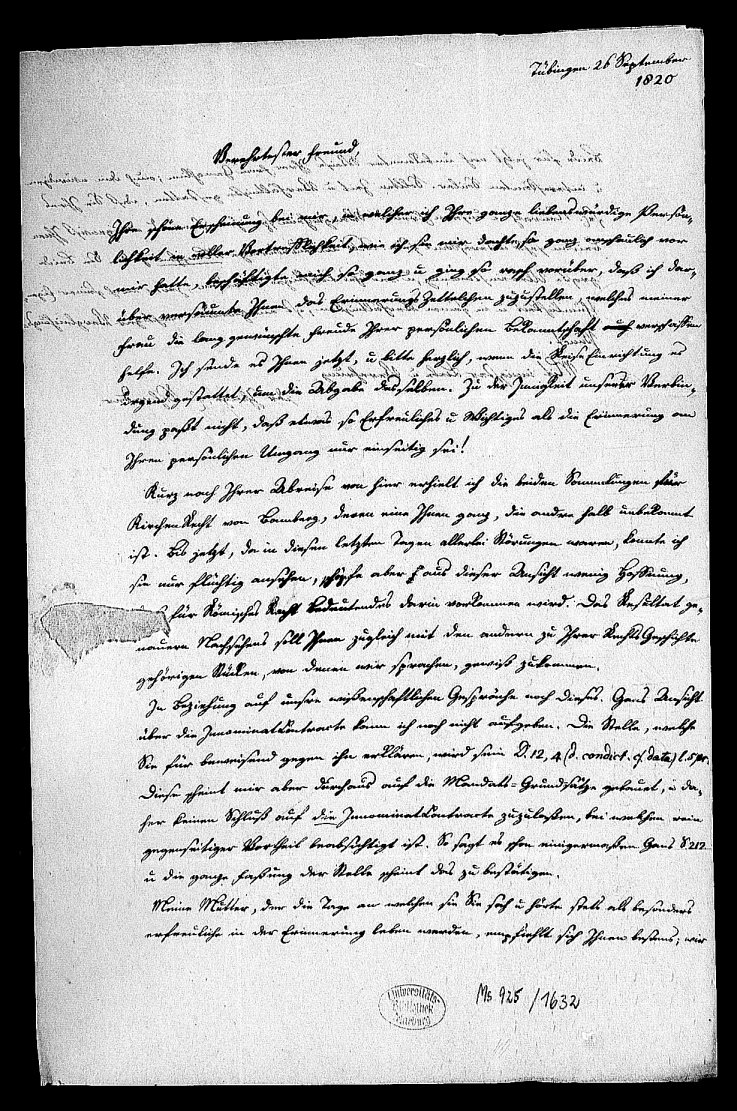 Tübingen 26 September
1820
Verehrtester Freund,
Ihre schöne Erscheinung bei mir, in welcher ich Ihre ganze liebenswürdige Persön-
lichkeit in aller Vortrefflichkeit, wie ich sie mir dachte, so ganz anschaulich vor
mir hatte, beschäftigte mich so ganz u ging so rasch vorüber, daß ich dar-
über versäumte Ihnen das Erinnerungs Zettelchen zuzustellen, welches meiner
Frau die lang gewünschte Freude Ihrer persönlichen Bekanntschaft auch verschaffen
helfe. Ich sende es Ihnen jetzt, u bitte herzlich, wenn die Reise Einrichtung es
irgend gestattet, um die Abgabe desselben. Zu der Innigkeit unserer Verbin-
dung paßt nicht, daß etwas so Erfreuliches u Wichtiges als die Erinnerung an
Ihren persönlichen Umgang nur einseitig sei!
Kurz nach Ihrer Abreise von hier erhielt ich die beiden Sammlungen für
Kirchen Recht von Bamberg, deren eine Ihnen ganz, die andre halb unbekannt
ist. Bis jetzt, da in diesen letzten Tagen allerlei Störungen waren, konnte ich
sie nur flüchtig ansehen, schöpfe aber aus dieser Ansicht wenig Hoffnung,
für Römisches Recht Bedeutendes darin vorkommen wird. Das Resultat ge-
nauern Nachsehens soll Ihnen zugleich mit den andern zu Ihrer Rechts Geschichte
gehörigen Stücken, von denen wir sprachen, gewiß zukommen.
In Beziehung auf unsre wissenschaftlichen Gespräche noch dieses. Gans Ansicht
über die InnominatContracte kann ich noch nicht aufgeben. Die Stelle, welche
Sie für beweisend gegen ihn erklären, wird sein D. 12, 4 (d. condict. c. data) l. 5 pr.
Diese scheint mir aber durchaus auf die Mandats-Grundsätze gebaut, u da-
her keinen Schluß auf die InnominatContracte zuzulaßen, bei welchen rein
gegenseitiger Vortheil beabsichtigt ist. So sagt es schon einigermaßen Gans S. 212
u die ganze Faßung der Stelle scheint das zu bestätigen.
Meine Mutter, der die Tage an welchen sie Sie sah u hörte stets als besonders
erfreuliche in der Erinnerung leben werden, empfiehlt sich Ihnen bestens; wir
Universitäts-
Bibliothek
Marburg
Ms 925 / 1632